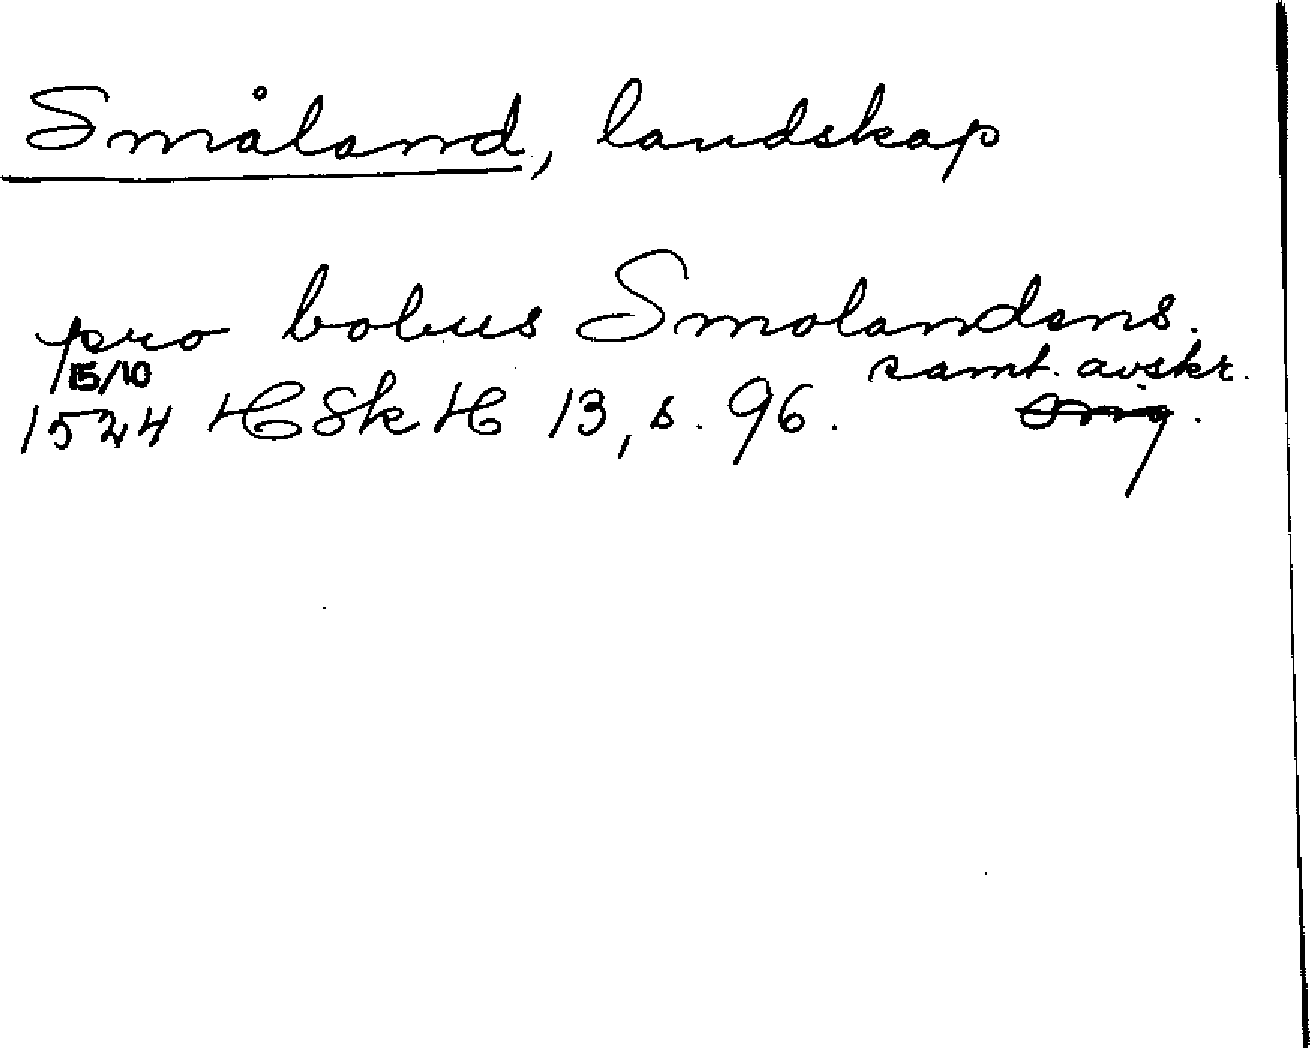 Småland, landskap
pro bobus Smolandens.
15/10 samt. avskr.
1524 HSkH 13, s. 96. Orig.